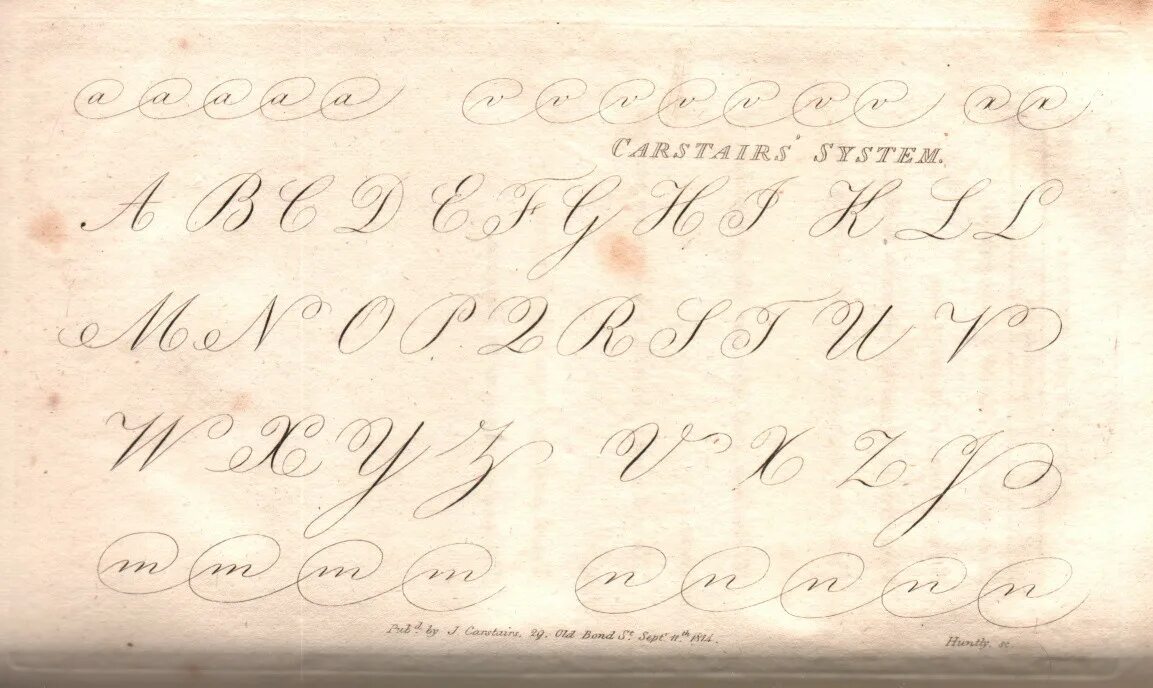 a a a a a v v v v v v v x x
CARSTAIRS' SYSTEM.
A B C D E F G H I K L L
M N O P Q R S T U V
W X Y Z V X Z Y
m m m m n n n n n
Pub.d by J. Carstairs, 29, Old Bond St. Sept. 11.th 1814. Huntly, sc.